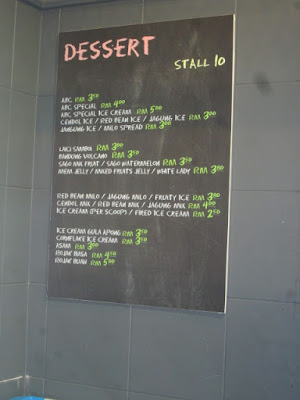 DESSERT
STALL 10
ABC RM 3.50
ABC SPECIAL RM 4.00
ABC SPECIAL ICE CREAM RM 5.00
CENDOL ICE / RED BEAN ICE / JAGUNG ICE RM 3.00
ICE / MILO SPREAD RM 3.00
LAICI RM 3.00
BANDUNG VOLCANO RM 3.00
SAGO MIX FRUIT / SAGO WATERMELON RM 3.50
JELLY / MIXED FRUITS JELLY / WHITE LADY RM 3.80
RED BEAN MILO / JAGUNG MILO / FRUITY ICE RM 3.80
CENDOL MIX / RED BEAN MIX / JAGUNG MIX RM 4.00
ICE CREAM (PER SCOOP) / FRIED ICE CREAM RM 2.50
ICE CREAM GULA APONG RM 3.50
CORNFLAKE ICE CREAM RM 3.50
ASAM RM 3.50
ROJAK RM 4.50
ROJAK BUAH RM 5.00